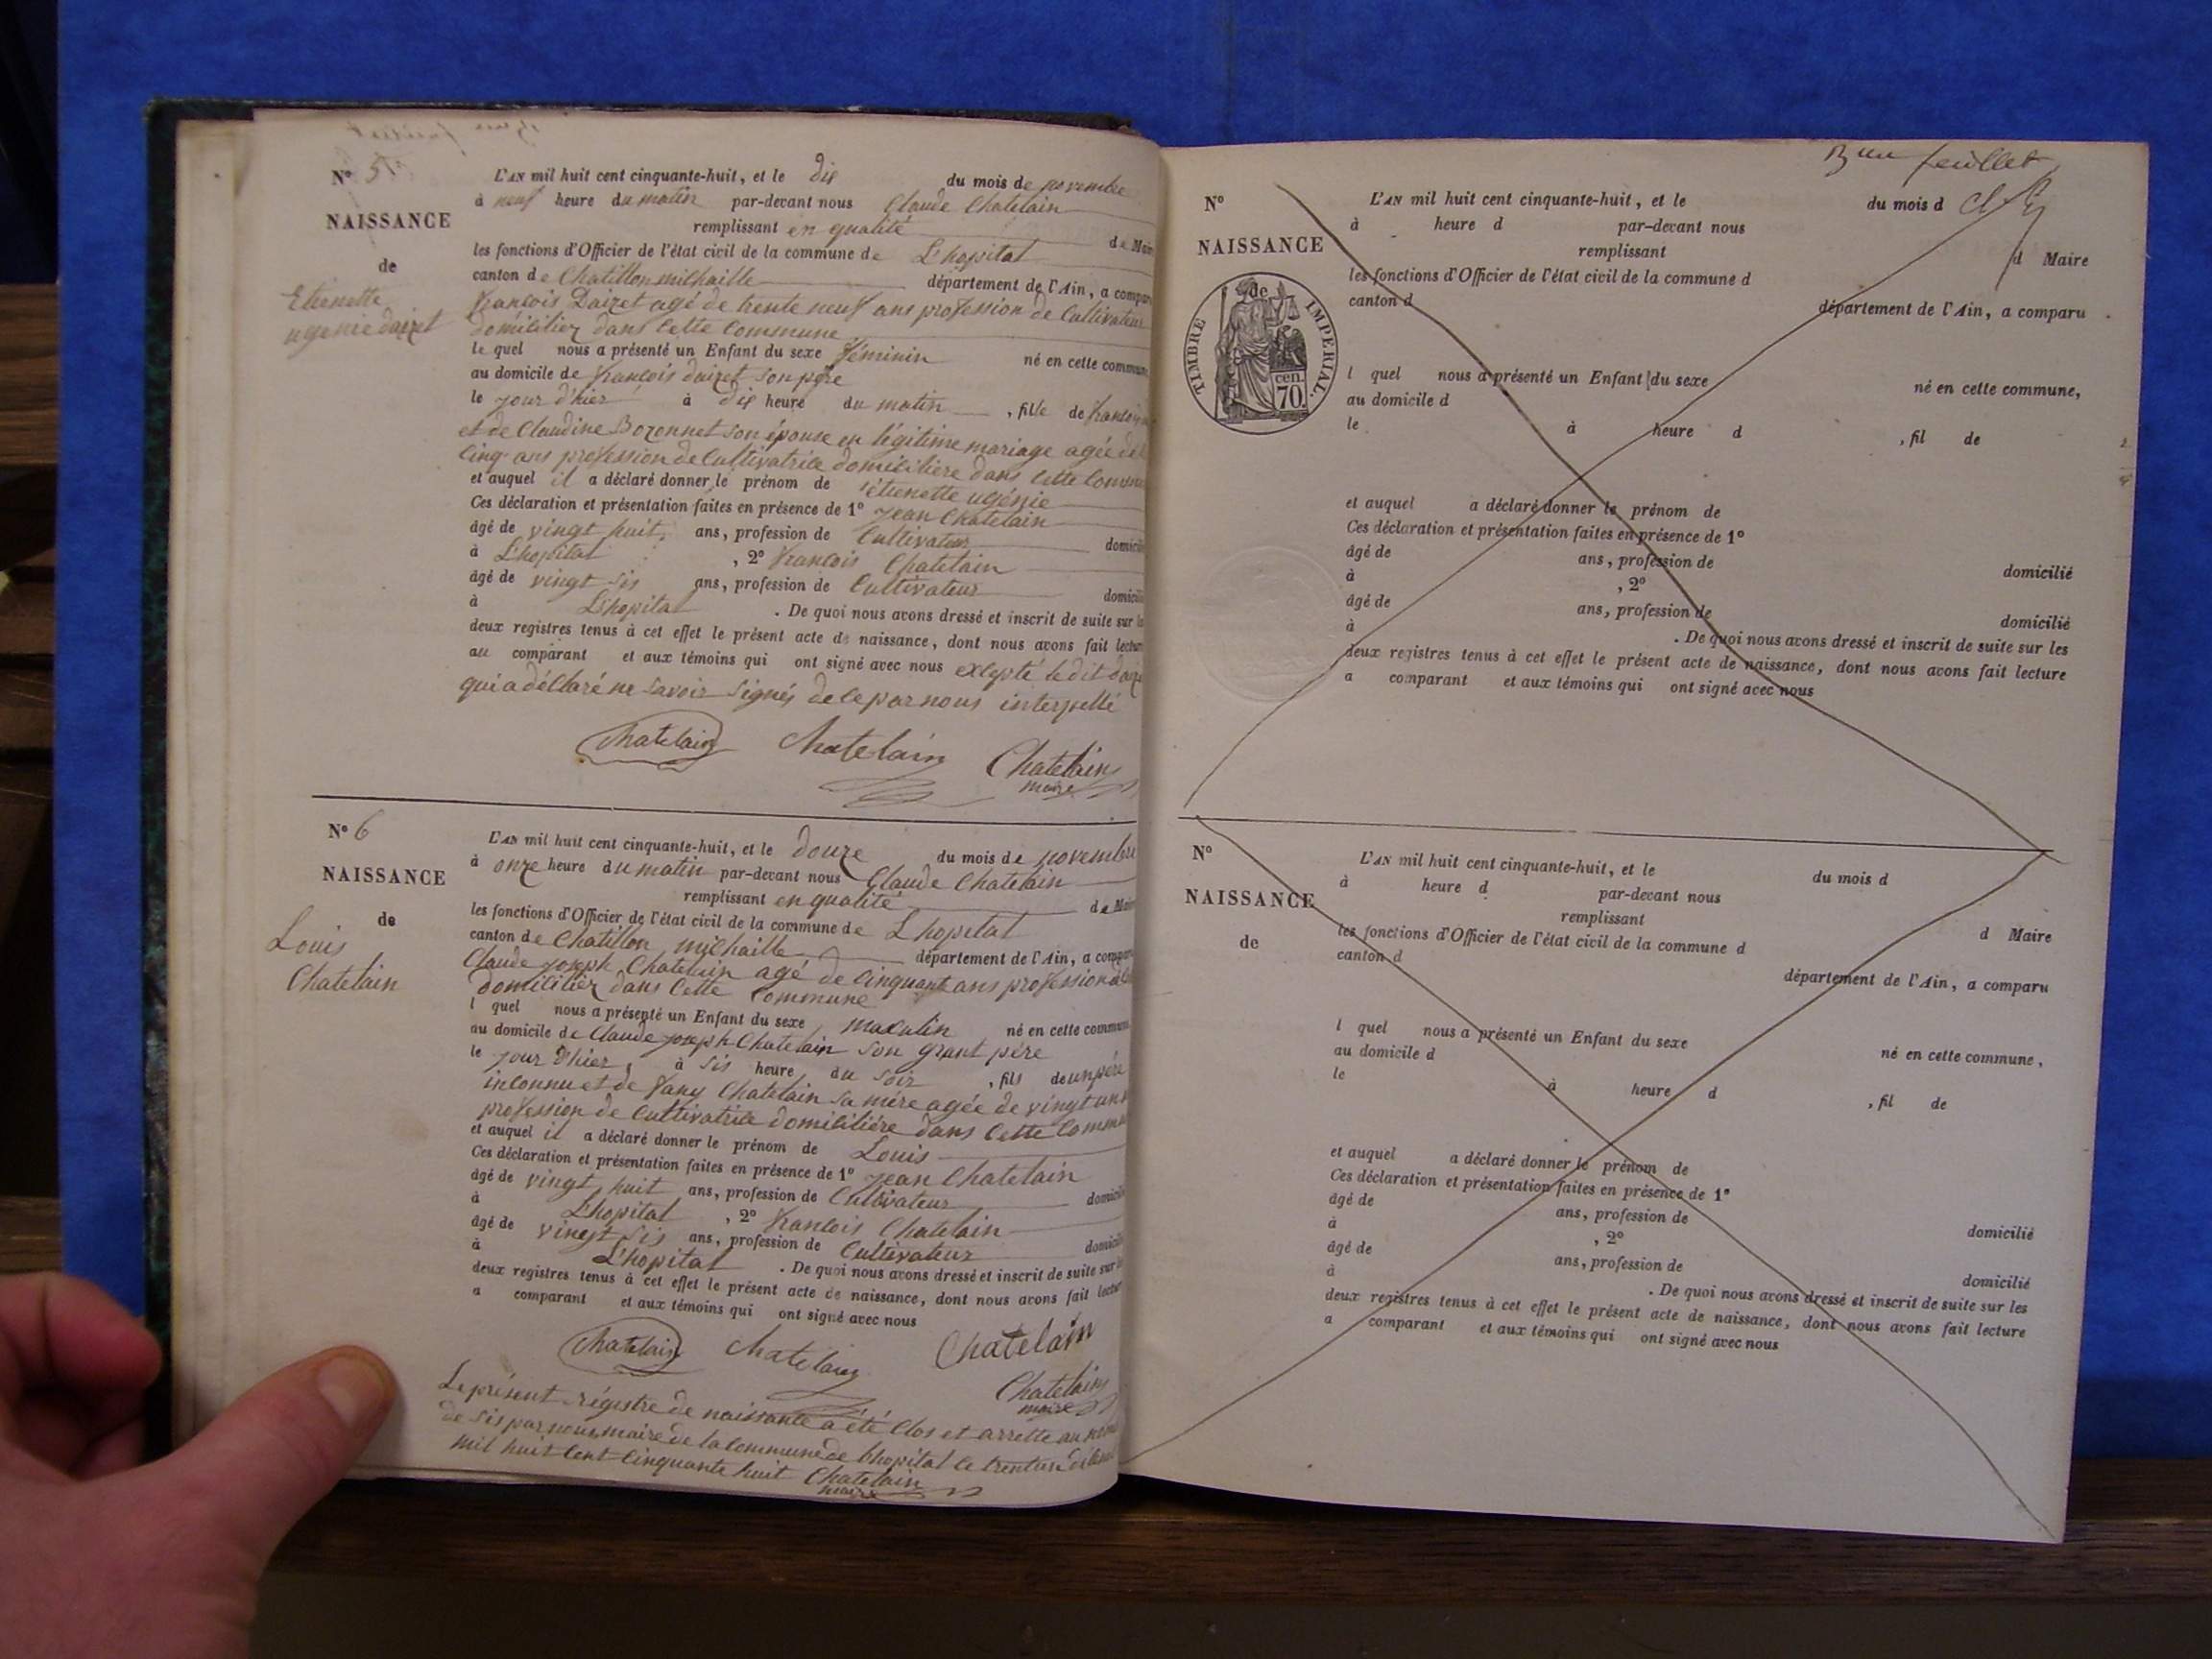 Nº 5
NAISSANCE
de
Etienette
ugenie dairet
L'AN mil huit cent cinquante-huit, et le dix du mois de novembre
à neuf heure du matin par-devant nous Claude Chatelain
remplissant en qualité de Maire
les fonctions d'Officier de l'état civil de la commune de L'hopital
canton de Chatillon milhaille département de l'Ain, a compar
françois Dairet agé de trente neuf ans profession de Cultivateur
domicilier dans Cette Commune
le quel nous a présenté un Enfant du sexe féminin né en cette commune
au domicile de françois dairet son père
le jour d'hier à dix heure du matin , fille de françois
et de Claudine Bozonnet son épouse en légitime mariage agée de
Cinq ans profession de Cultivatrice domicilière dans Cette Commune
et auquel il a déclaré donner le prénom de étienette ugénie
Ces déclaration et présentation faites en présence de 1º jean Chatelain
âgé de vingt huit ans, profession de Cultivateur domicilié
à L'hopital , 2º françois Chatelain
âgé de vingt sis ans, profession de Cultivateur domicilié
à L'hopital . De quoi nous avons dressé et inscrit de suite sur
deux registres tenus à cet effet le présent acte de naissance, dont nous avons fait lecture
au comparant et aux témoins qui ont signé avec nous excepté le dit
qui a déclaré ne savoir signés de ce par nous interpellé
Chatelain Chatelain Chatelain
maire
Nº 6
NAISSANCE
de
Louis
Chatelain
L'AN mil huit cent cinquante-huit, et le douze du mois de novembre
à onze heure du matin par-devant nous Claude Chatelain
remplissant en qualité de Maire
les fonctions d'Officier de l'état civil de la commune de L'hopital
canton de Chatillon milhaille département de l'Ain, a compar
Claude joseph Chatelain agé de Cinquant ans profession de
domicilier dans Cette Commune
l quel nous a présenté un Enfant du sexe maculin né en cette commune
au domicile de Claude joseph Chatelain son grant père
le jour d'hier à sis heure du soir , fils de un père
inconnu et de fany Chatelain sa mère agée de vingt un
profession de Cultivatrice domicilière dans Cette Commune
et auquel il a déclaré donner le prénom de Louis
Ces déclaration et présentation faites en présence de 1º jean Chatelain
âgé de vingt huit ans, profession de Cultivateur domicilié
à L'hopital , 2º françois Chatelain
âgé de vingt sis ans, profession de Cultivateur domicilié
à L'hopital . De quoi nous avons dressé et inscrit de suite sur
deux registres tenus à cet effet le présent acte de naissance, dont nous avons fait lecture
a comparant et aux témoins qui ont signé avec nous
Chatelain Chatelain Chatelain
Chatelain
maire
Le présent régistre de naissance a été Clos et arretté au
de sis par nous maire de la Commune de lhopital le trente un
mil huit Cent Cinquante huit Chatelain
maire
3me feuillet
Nº
NAISSANCE
de
TIMBRE IMPERIAL.
70 cen.
L'AN mil huit cent cinquante-huit, et le du mois d
à heure d par-devant nous
remplissant d Maire
les fonctions d'Officier de l'état civil de la commune d
canton d département de l'Ain, a comparu
l quel nous a présenté un Enfant du sexe né en cette commune,
au domicile d
le à heure d , fil de
et auquel a déclaré donner le prénom de
Ces déclaration et présentation faites en présence de 1º
âgé de ans, profession de domicilié
à , 2º
âgé de ans, profession de domicilié
à . De quoi nous avons dressé et inscrit de suite sur les
deux registres tenus à cet effet le présent acte de naissance, dont nous avons fait lecture
a comparant et aux témoins qui ont signé avec nous
Nº
NAISSANCE
de
L'AN mil huit cent cinquante-huit, et le du mois d
à heure d par-devant nous
remplissant d Maire
les fonctions d'Officier de l'état civil de la commune d
canton d département de l'Ain, a comparu
l quel nous a présenté un Enfant du sexe né en cette commune,
au domicile d
le à heure d , fil de
et auquel a déclaré donner le prénom de
Ces déclaration et présentation faites en présence de 1º
âgé de ans, profession de domicilié
à , 2º
âgé de ans, profession de domicilié
à . De quoi nous avons dressé et inscrit de suite sur les
deux registres tenus à cet effet le présent acte de naissance, dont nous avons fait lecture
a comparant et aux témoins qui ont signé avec nous